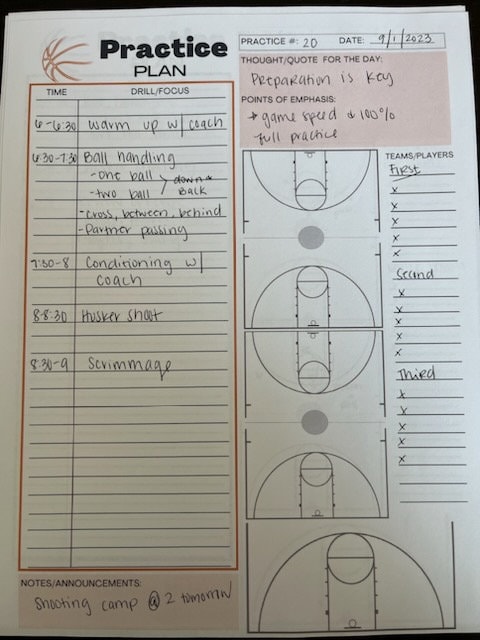 Practice
PLAN
PRACTICE #: 20 DATE: 9/1/2023
THOUGHT/QUOTE FOR THE DAY:
Preparation is key
POINTS OF EMPHASIS:
game speed & 100%
full practice
TIME DRILL/FOCUS
6-6:30 Warm up w/ coach
6:30-7:30 Ball handling
- one ball
- two ball
down & back
- cross, between, behind
- Partner passing
7:30-8 Conditioning w/
coach
8-8:30 Husker shoot
8:30-9 Scrimmage
TEAMS/PLAYERS
First
x
x
x
x
x
Second
x
x
x
x
x
Third
x
x
x
x
x
NOTES/ANNOUNCEMENTS:
Shooting camp @ 2 tomorrow